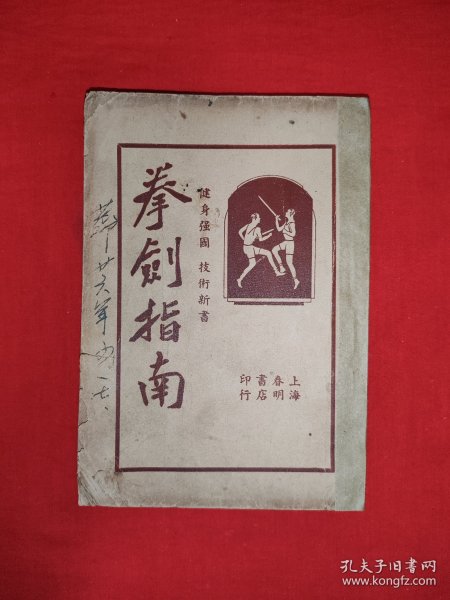 拳劍指南
健身强國 技術新書
上海
春明
書店
印行
廿六年
孔夫子旧书网
www.kongfz.com